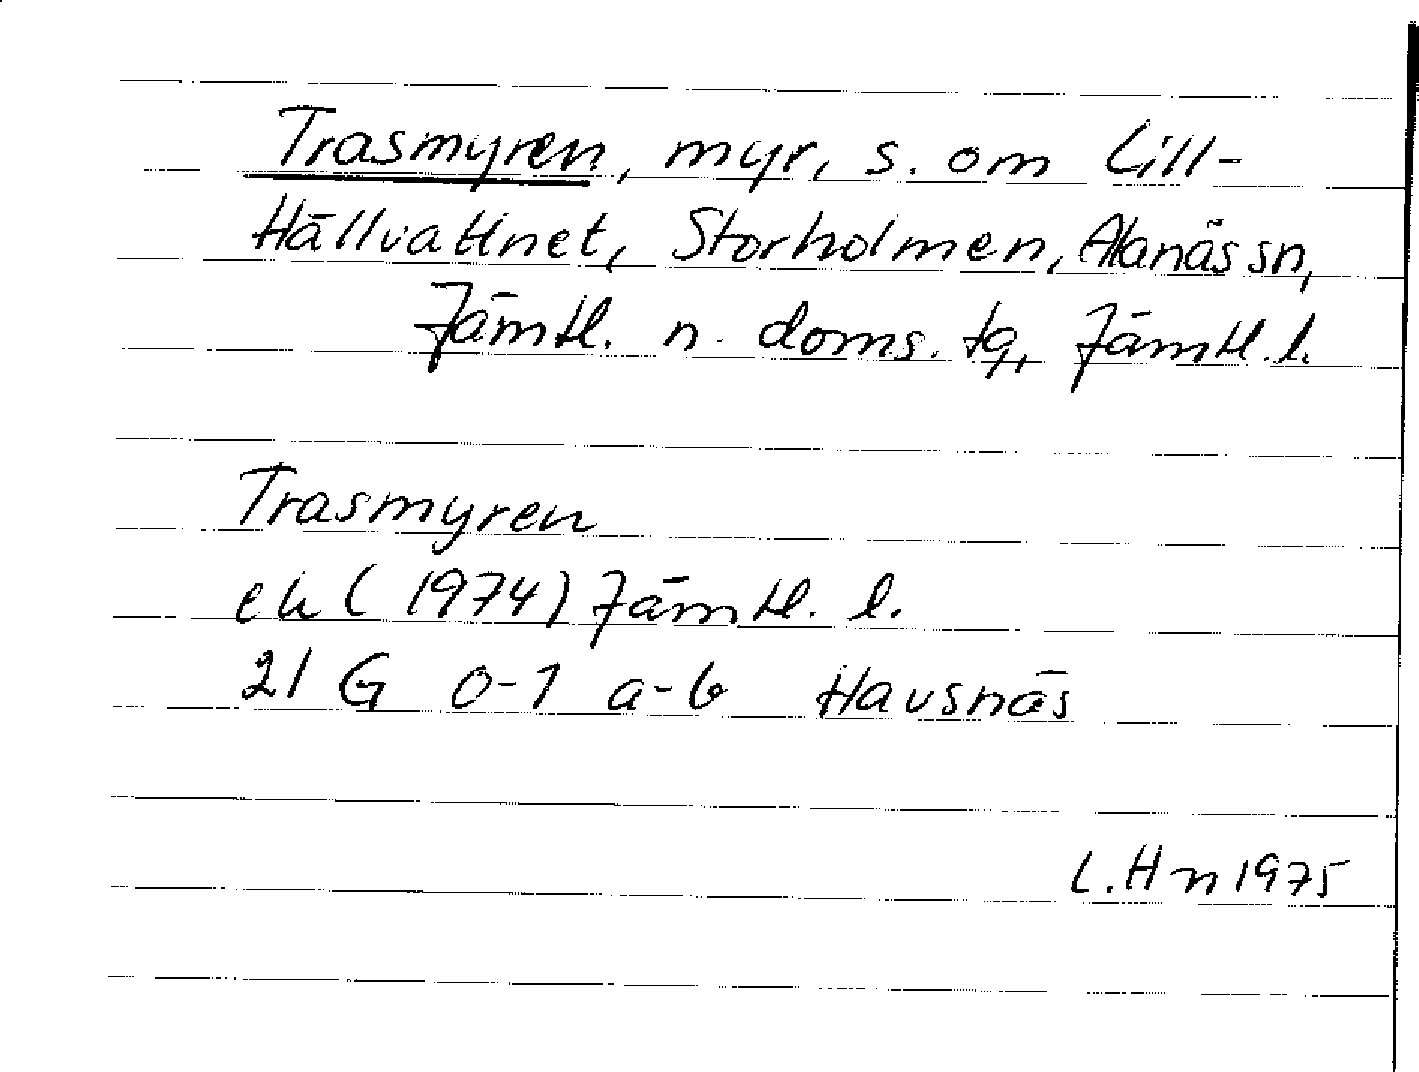 Trasmyren, myr, s. om Lill-
Hällvattnet, Storholmen, Alanäs sn,
Jämtl. n. doms. tg, Jämtl. l.
Trasmyren
ek (1974) Jämtl. l.
21 G 0-1 a-b Havsnäs
L. Hn 1975